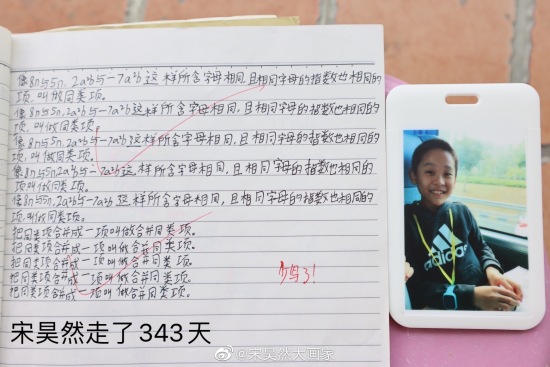 像8n与5n,2a²b与-7a²b这样所含字母相同,且相同字母的指数也相同的
项,叫做同类项。
像8n与5n,2a²b与-7a²b这样所含字母相同,且相同字母的指数也相同的
项,叫做同类项。
像8n与5n,2a²b与-7a²b这样所含字母相同,且相同字母的指数也相同的
项,叫做同类项。
像8n与5n,2a²b与-7a²b这样所含字母相同,且相同字母的指数也相同的
项,叫做同类项。
像8n与5n,2a²b与-7a²b这样所含字母相同,且相同字母的指数也相同的
项,叫做同类项。
把同类项合并成一项叫做合并同类项。
把同类项合并成一项叫做合并同类项。
把同类项合并成一项叫做合并同类项。
把同类项合并成一项叫做合并同类项。
把同类项合并成一项叫做合并同类项。
宋昊然走了343天
adidas
@宋昊然大画家